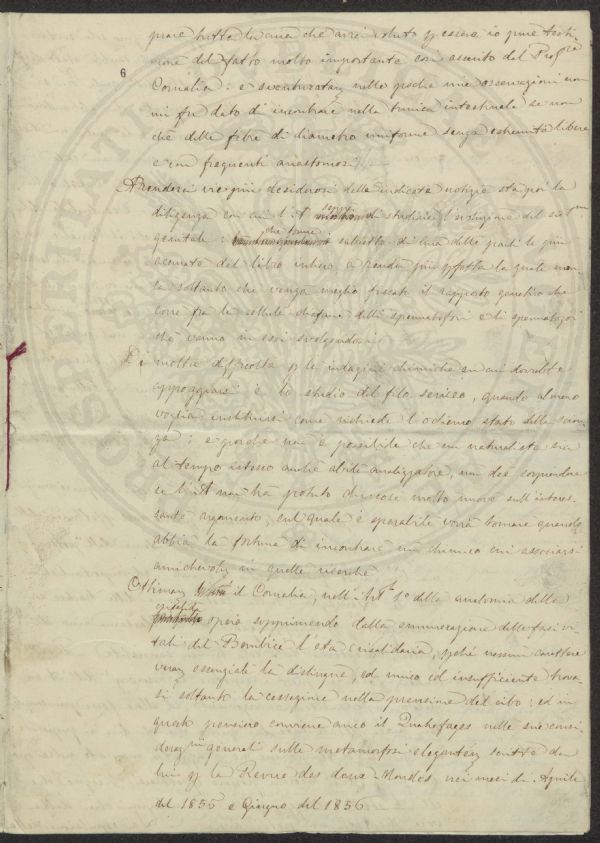 prare tutta la cura che avrei voluto p essere io pure testi-
mone del fatto molto importante così asserito dal Prof.re
6
Cornalia: e nelle poche mie osservazioni non
mi fu dato di incontrare nella tunica intestinale se non
che delle fibre di diametro uniforme senza estremità libere
e con frequenti anastomosi.
A renderci vie più desiderosi delle indicate notizie sta poi la
diligenza con cui l'A di studiare l'evoluzione del
genitale: subietto di una delle parti le più
accurate del libro intiero, a render più pfetta la quale man-
ca soltanto che venga meglio fissato il rapporto genetico che
corre fra le cellule diafane delli spermatofori e li spermatozoi
che vanno in essi svolgendosi
Di molta difficoltà p le indagini chimiche su cui dovrebbe
appoggiarsi è lo studio del filo sericeo, quando almeno
voglia instituirsi come richiede l'odierno stato della scien-
za: e poiché non è possibile che un naturalista sia
al tempo istesso anche abile analizzatore, non dee sorprendere
se l'A non ha potuto dir cose molto nuove sull'interes-
sante argomento, sul quale è sperabile vorrà tornare quando
abbia la fortuna di incontrare un chimico cui associarsi
amichevolm in quelle ricerche
il Cornalia, nell'Art. 1º della anatomia della
operò sopprimendo dalla enumerazione delle fasi vi-
tali del Bombice l'età crisalidaria, pché nessun carattere
veram essenziale la distingue, ed unico ed insufficiente trova-
si soltanto la cessazione nella prensione del cibo; ed in
questo pensiero conviene anco il Quatrefages nelle sue consi-
deraz.ni generali sulle metamorfosi elegantem scritte da
lui p la Revue des deux-Mondes nei mesi di Aprile
del 1855 e Giugno del 1856